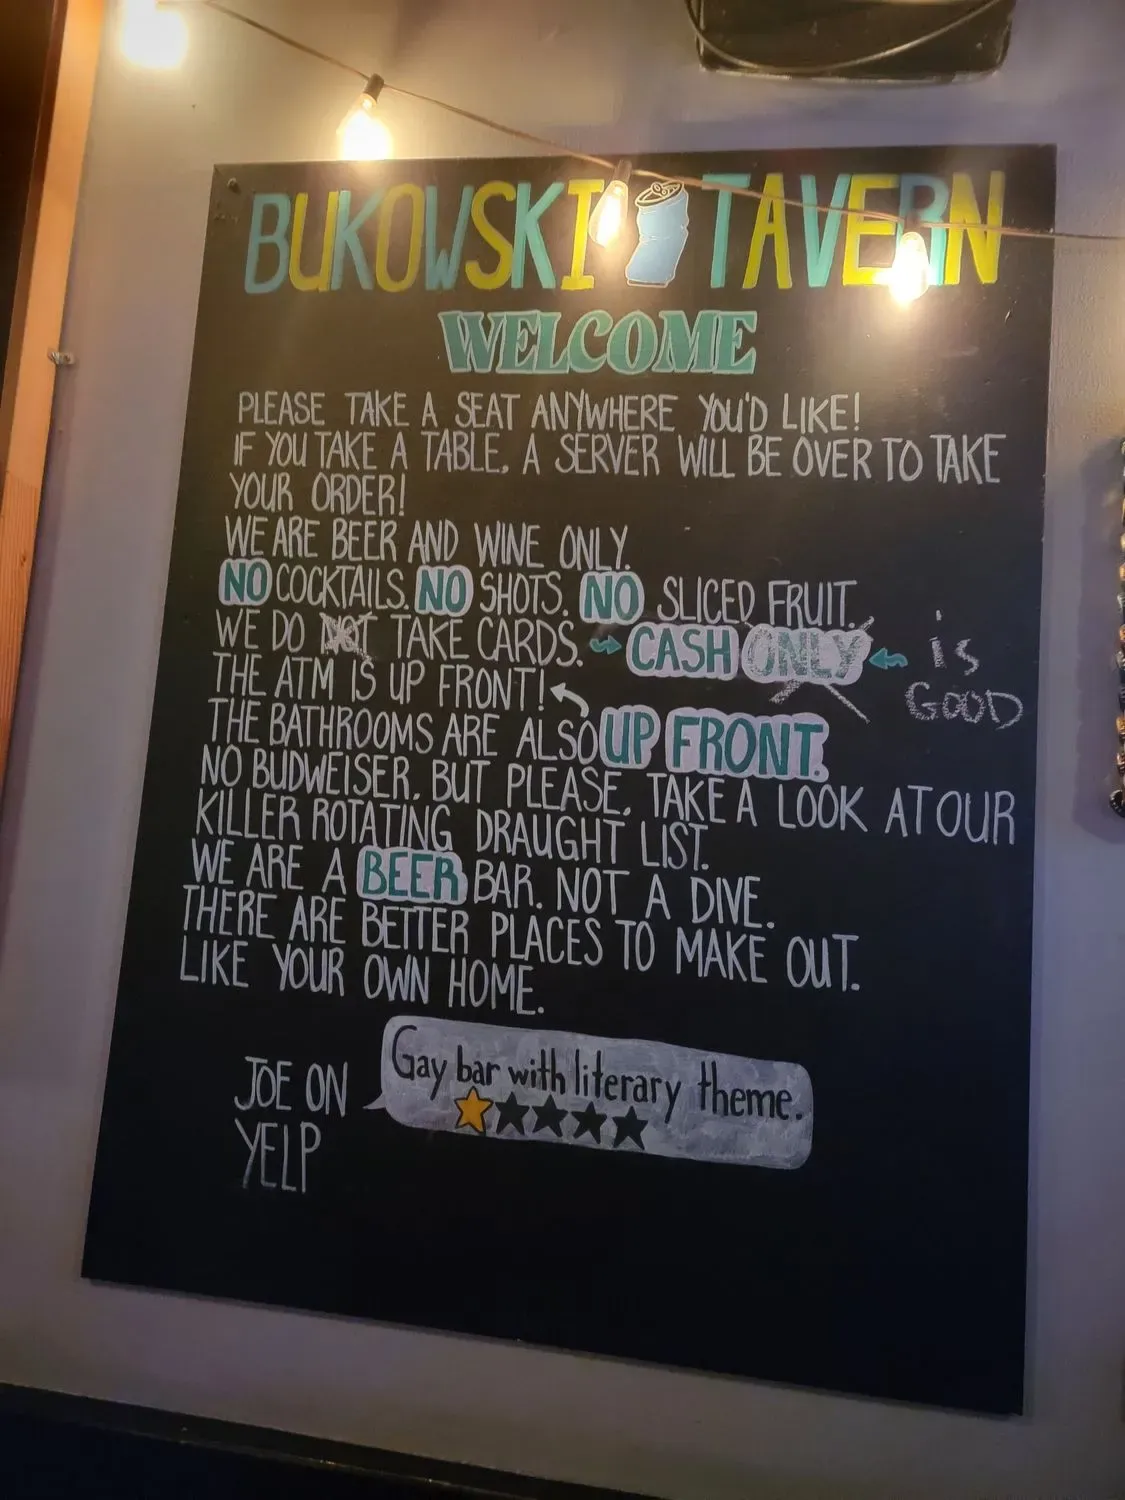 BUKOWSKI TAVERN
WELCOME
PLEASE TAKE A SEAT ANYWHERE YOU'D LIKE!
IF YOU TAKE A TABLE, A SERVER WILL BE OVER TO TAKE
YOUR ORDER!
WE ARE BEER AND WINE ONLY.
NO COCKTAILS. NO SHOTS. NO SLICED FRUIT.
WE DO NOT TAKE CARDS. CASH ONLY is GOOD
THE ATM IS UP FRONT!
THE BATHROOMS ARE ALSO UP FRONT.
NO BUDWEISER. BUT PLEASE, TAKE A LOOK AT OUR
KILLER ROTATING DRAUGHT LIST.
WE ARE A BEER BAR. NOT A DIVE.
THERE ARE BETTER PLACES TO MAKE OUT.
LIKE YOUR OWN HOME.
JOE ON YELP
Gay bar with literary theme.